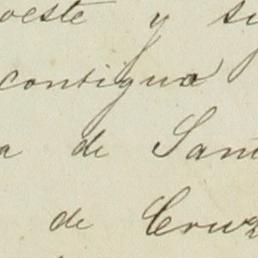 oeste y su
contigua
a de San
de Cruz